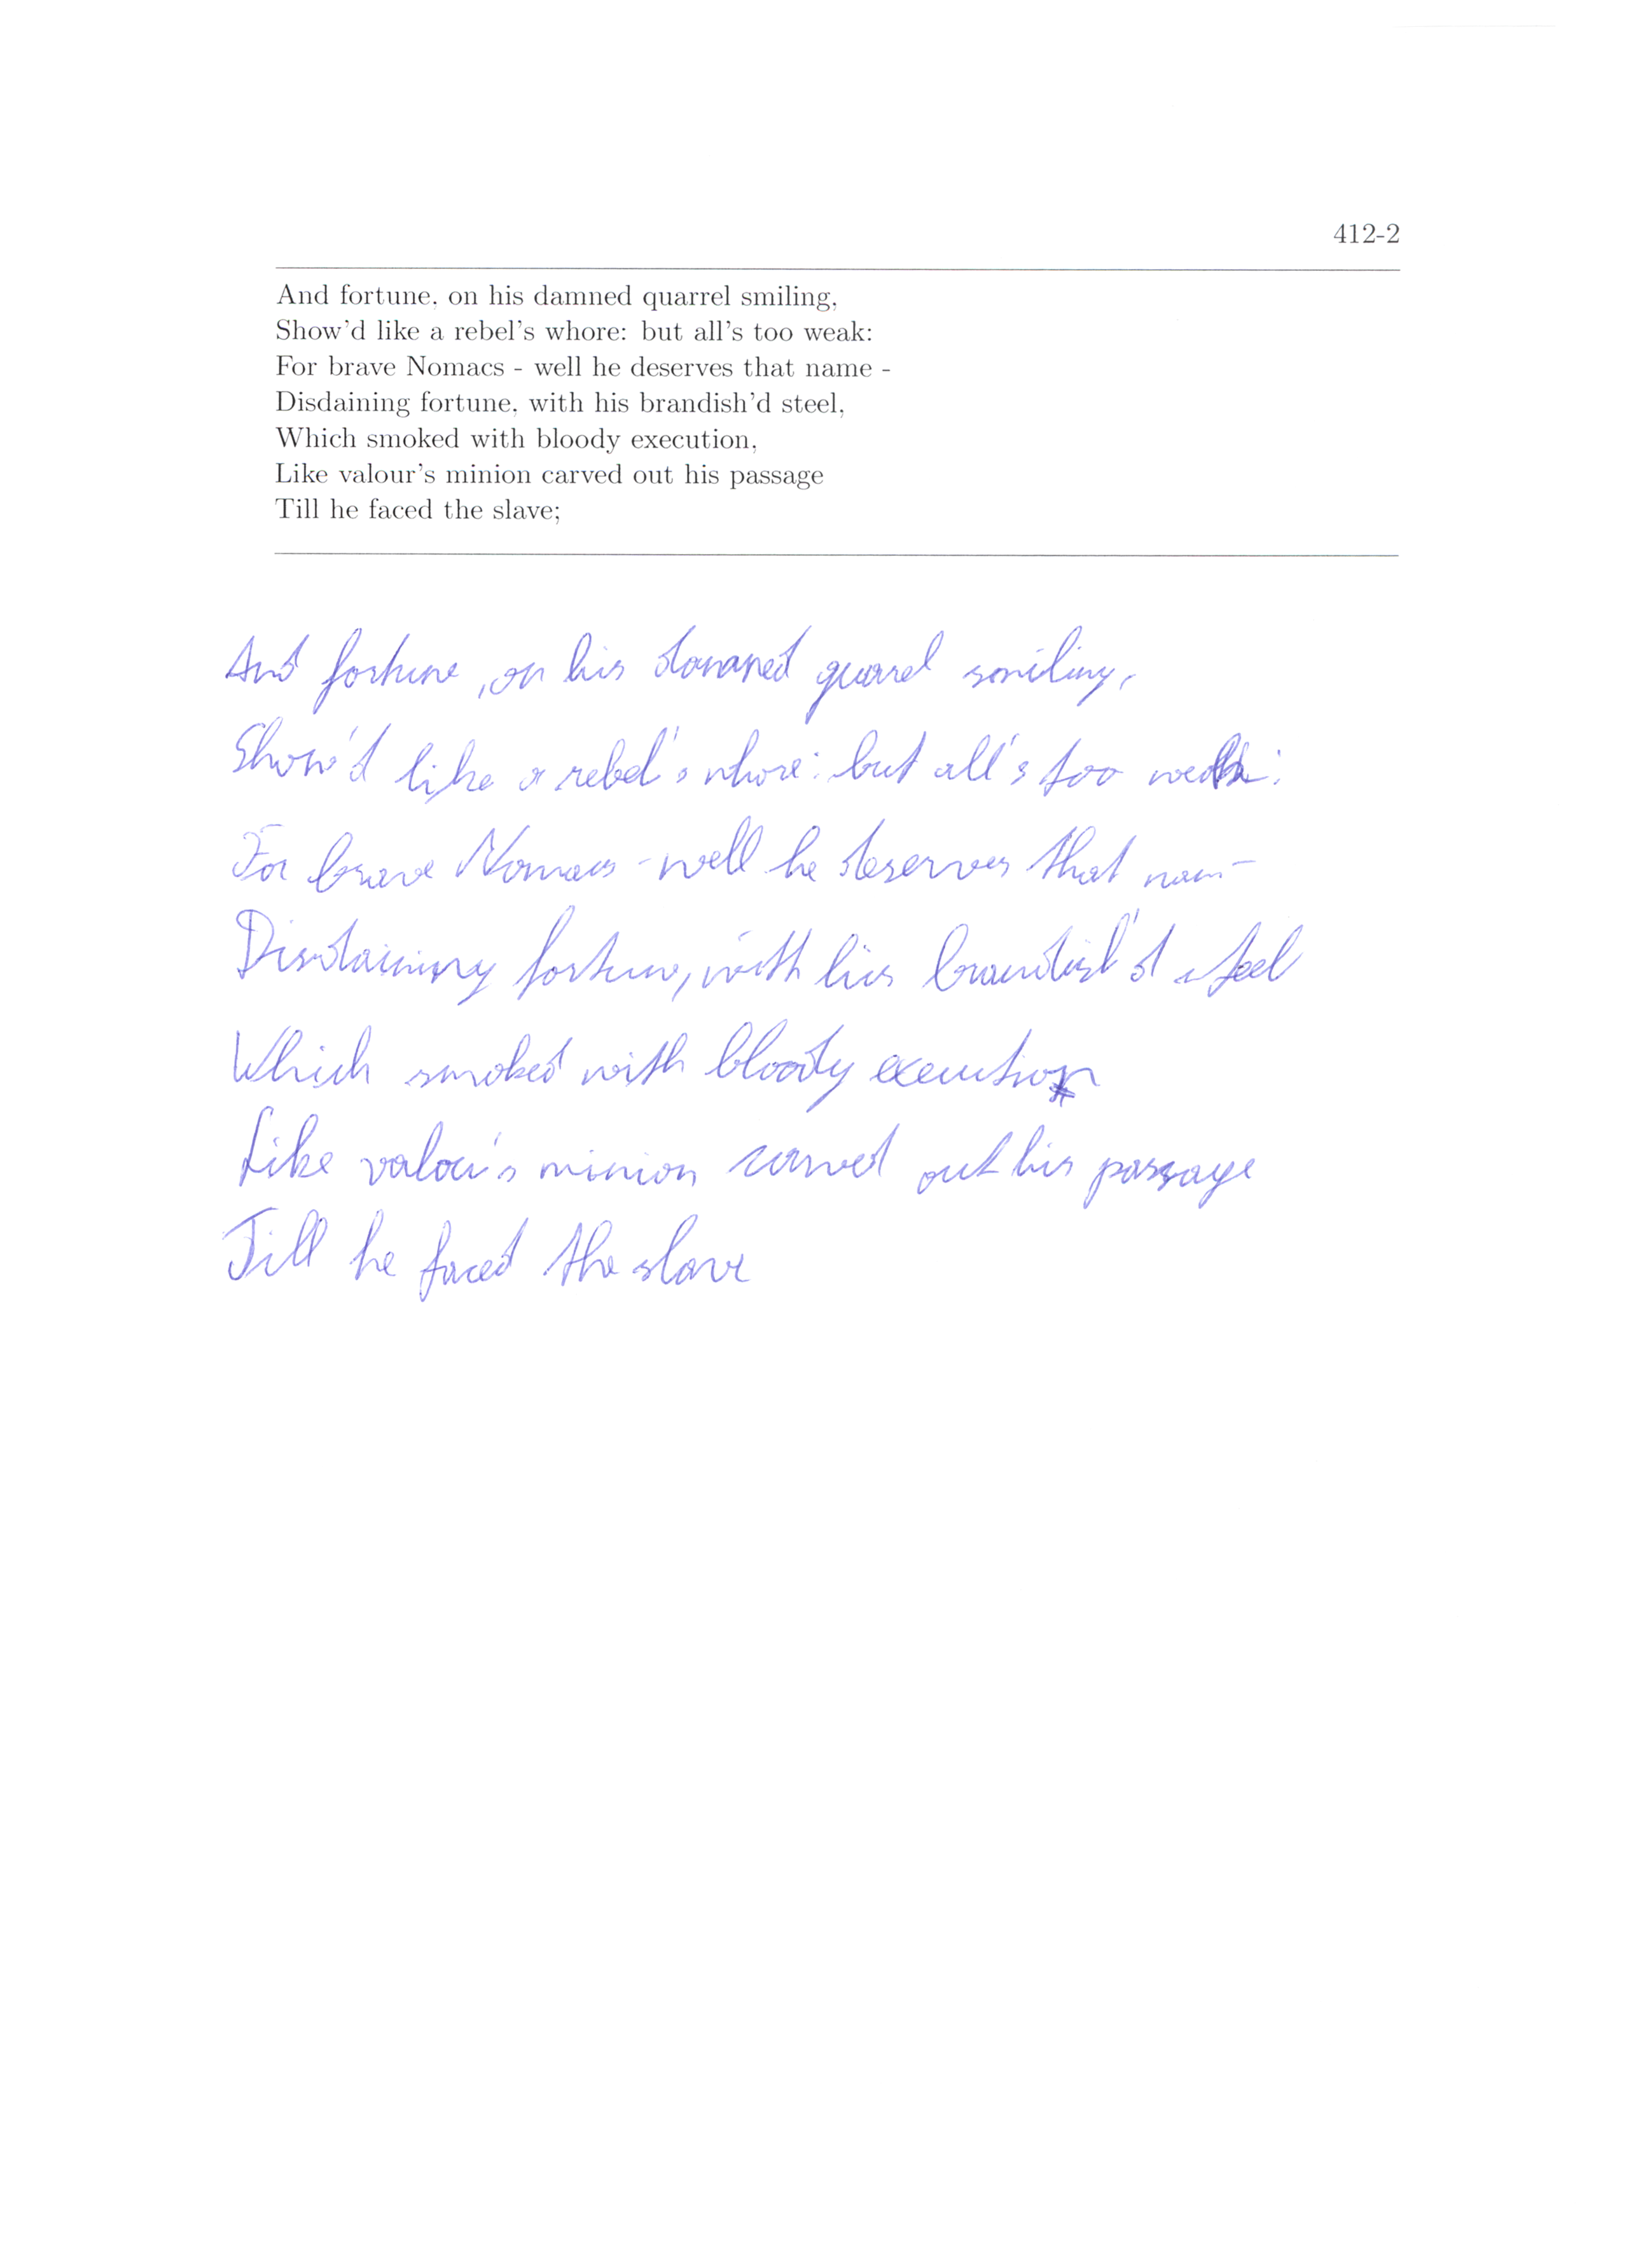 412-2
And fortune, on his damned quarrel smiling,
Show'd like a rebel's whore: but all's too weak:
For brave Nomacs - well he deserves that name -
Disdaining fortune, with his brandish'd steel,
Which smoked with bloody execution,
Like valour's minion carved out his passage
Till he faced the slave;
And fortune, on his damned quarrel smiling,
Show'd like a rebel's whore: but all's too weak:
For brave Nomacs - well he deserves that nam-
Disdaining fortune, with his brandish'd steel
Which smoked with bloody execution
Like valou's minion carved out his passage
Till he faced the slave